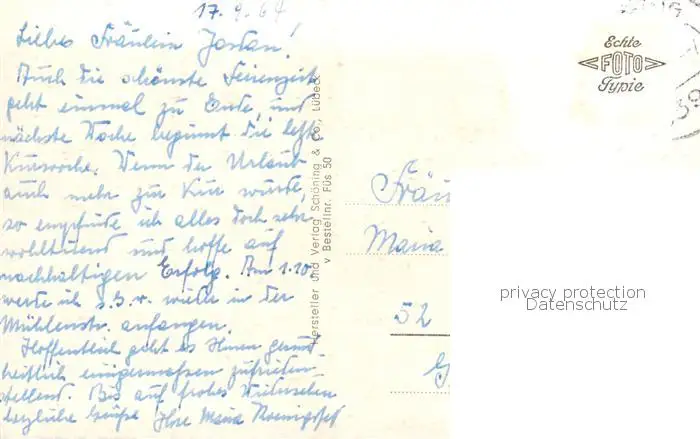 17.9.64
Liebes Fräulein Jordan!
Auch die schönste Ferienzeit
geht einmal zu Ende, und
nächste Woche beginnt die letzte
Kurwoche. Wenn der Urlaub
auch mehr zur Kur wurde,
so empfinde ich alles doch sehr
wohltuend und hoffe auf
nachhaltigen Erfolg. Am 1.10.
werde ich s.G.w. wieder in der
Mühlenstr. anfangen.
Hoffentlich geht es Ihnen gesund-
heitlich einigermaßen zufrieden-
stellend. Bis auf frohes Wiedersehen
herzliche Grüße Ihre Maria
Hersteller und Verlag Schöning & Co., Lübeck
Bestellnr. Füs 50
Echte
FOTO
Typie
Fräu
Maria
52
privacy protection
Datenschutz